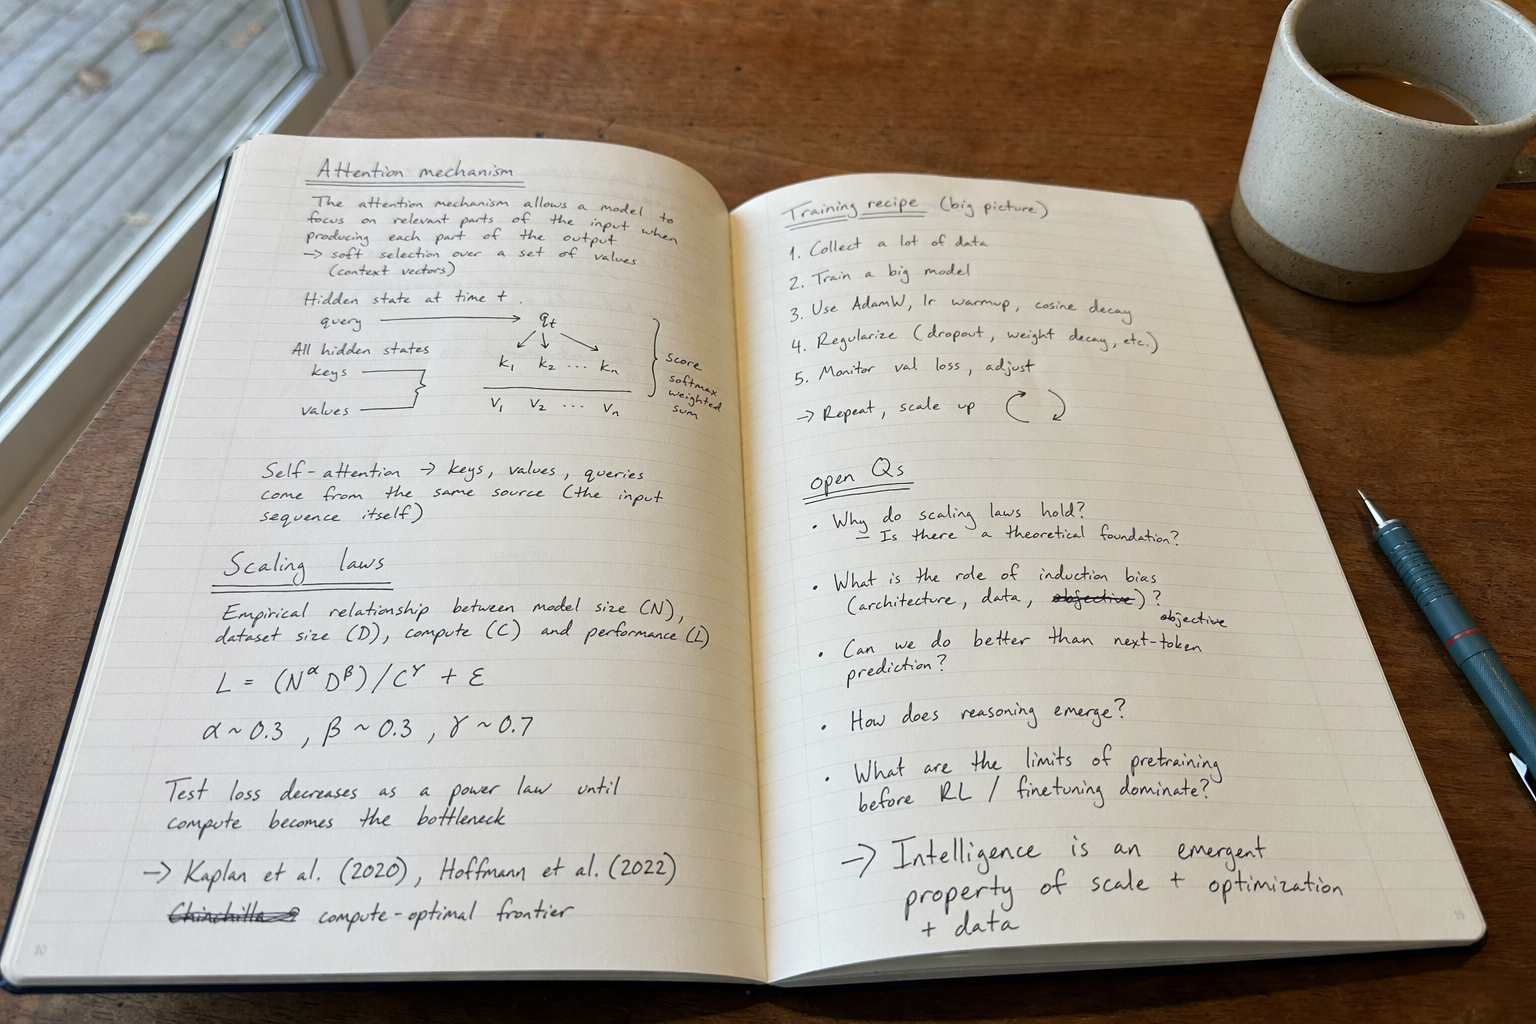 Attention mechanism
The attention mechanism allows a model to
focus on relevant parts of the input when
producing each part of the output
→ soft selection over a set of values
(context vectors)
Hidden state at time t .
query → qt
All hidden states
keys
k1 k2 ... kn
values
V1 V2 ... Vn
score
softmax
weighted
sum
Self-attention → keys, values, queries
come from the same source (the input
sequence itself)
Scaling laws
Empirical relationship between model size (N),
dataset size (D), compute (C) and performance (L)
L = (N^α D^β) / C^γ + ε
α ~ 0.3 , β ~ 0.3 , γ ~ 0.7
Test loss decreases as a power law until
compute becomes the bottleneck
→ Kaplan et al. (2020), Hoffmann et al. (2022)
Chinchilla compute-optimal frontier
10
Training recipe (big picture)
1. Collect a lot of data
2. Train a big model
3. Use AdamW, lr warmup, cosine decay
4. Regularize (dropout, weight decay, etc.)
5. Monitor val loss, adjust
→ Repeat, scale up
open Qs
• Why do scaling laws hold?
– Is there a theoretical foundation?
• What is the role of induction bias
(architecture, data, objective) ?
objective
• Can we do better than next-token
prediction?
• How does reasoning emerge?
• What are the limits of pretraining
before RL / finetuning dominate?
→ Intelligence is an emergent
property of scale + optimization
+ data